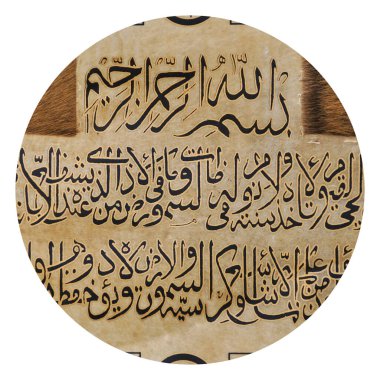 بسم الله الرحمن الرحيم
الحي القيوم لا تاخذه سنة ولا نوم له ما في السموات وما في الارض من ذا الذي يشفع عنده الا
من علمه الا بما شاء وسع كرسيه السموات والارض ولا يؤده حفظهما و